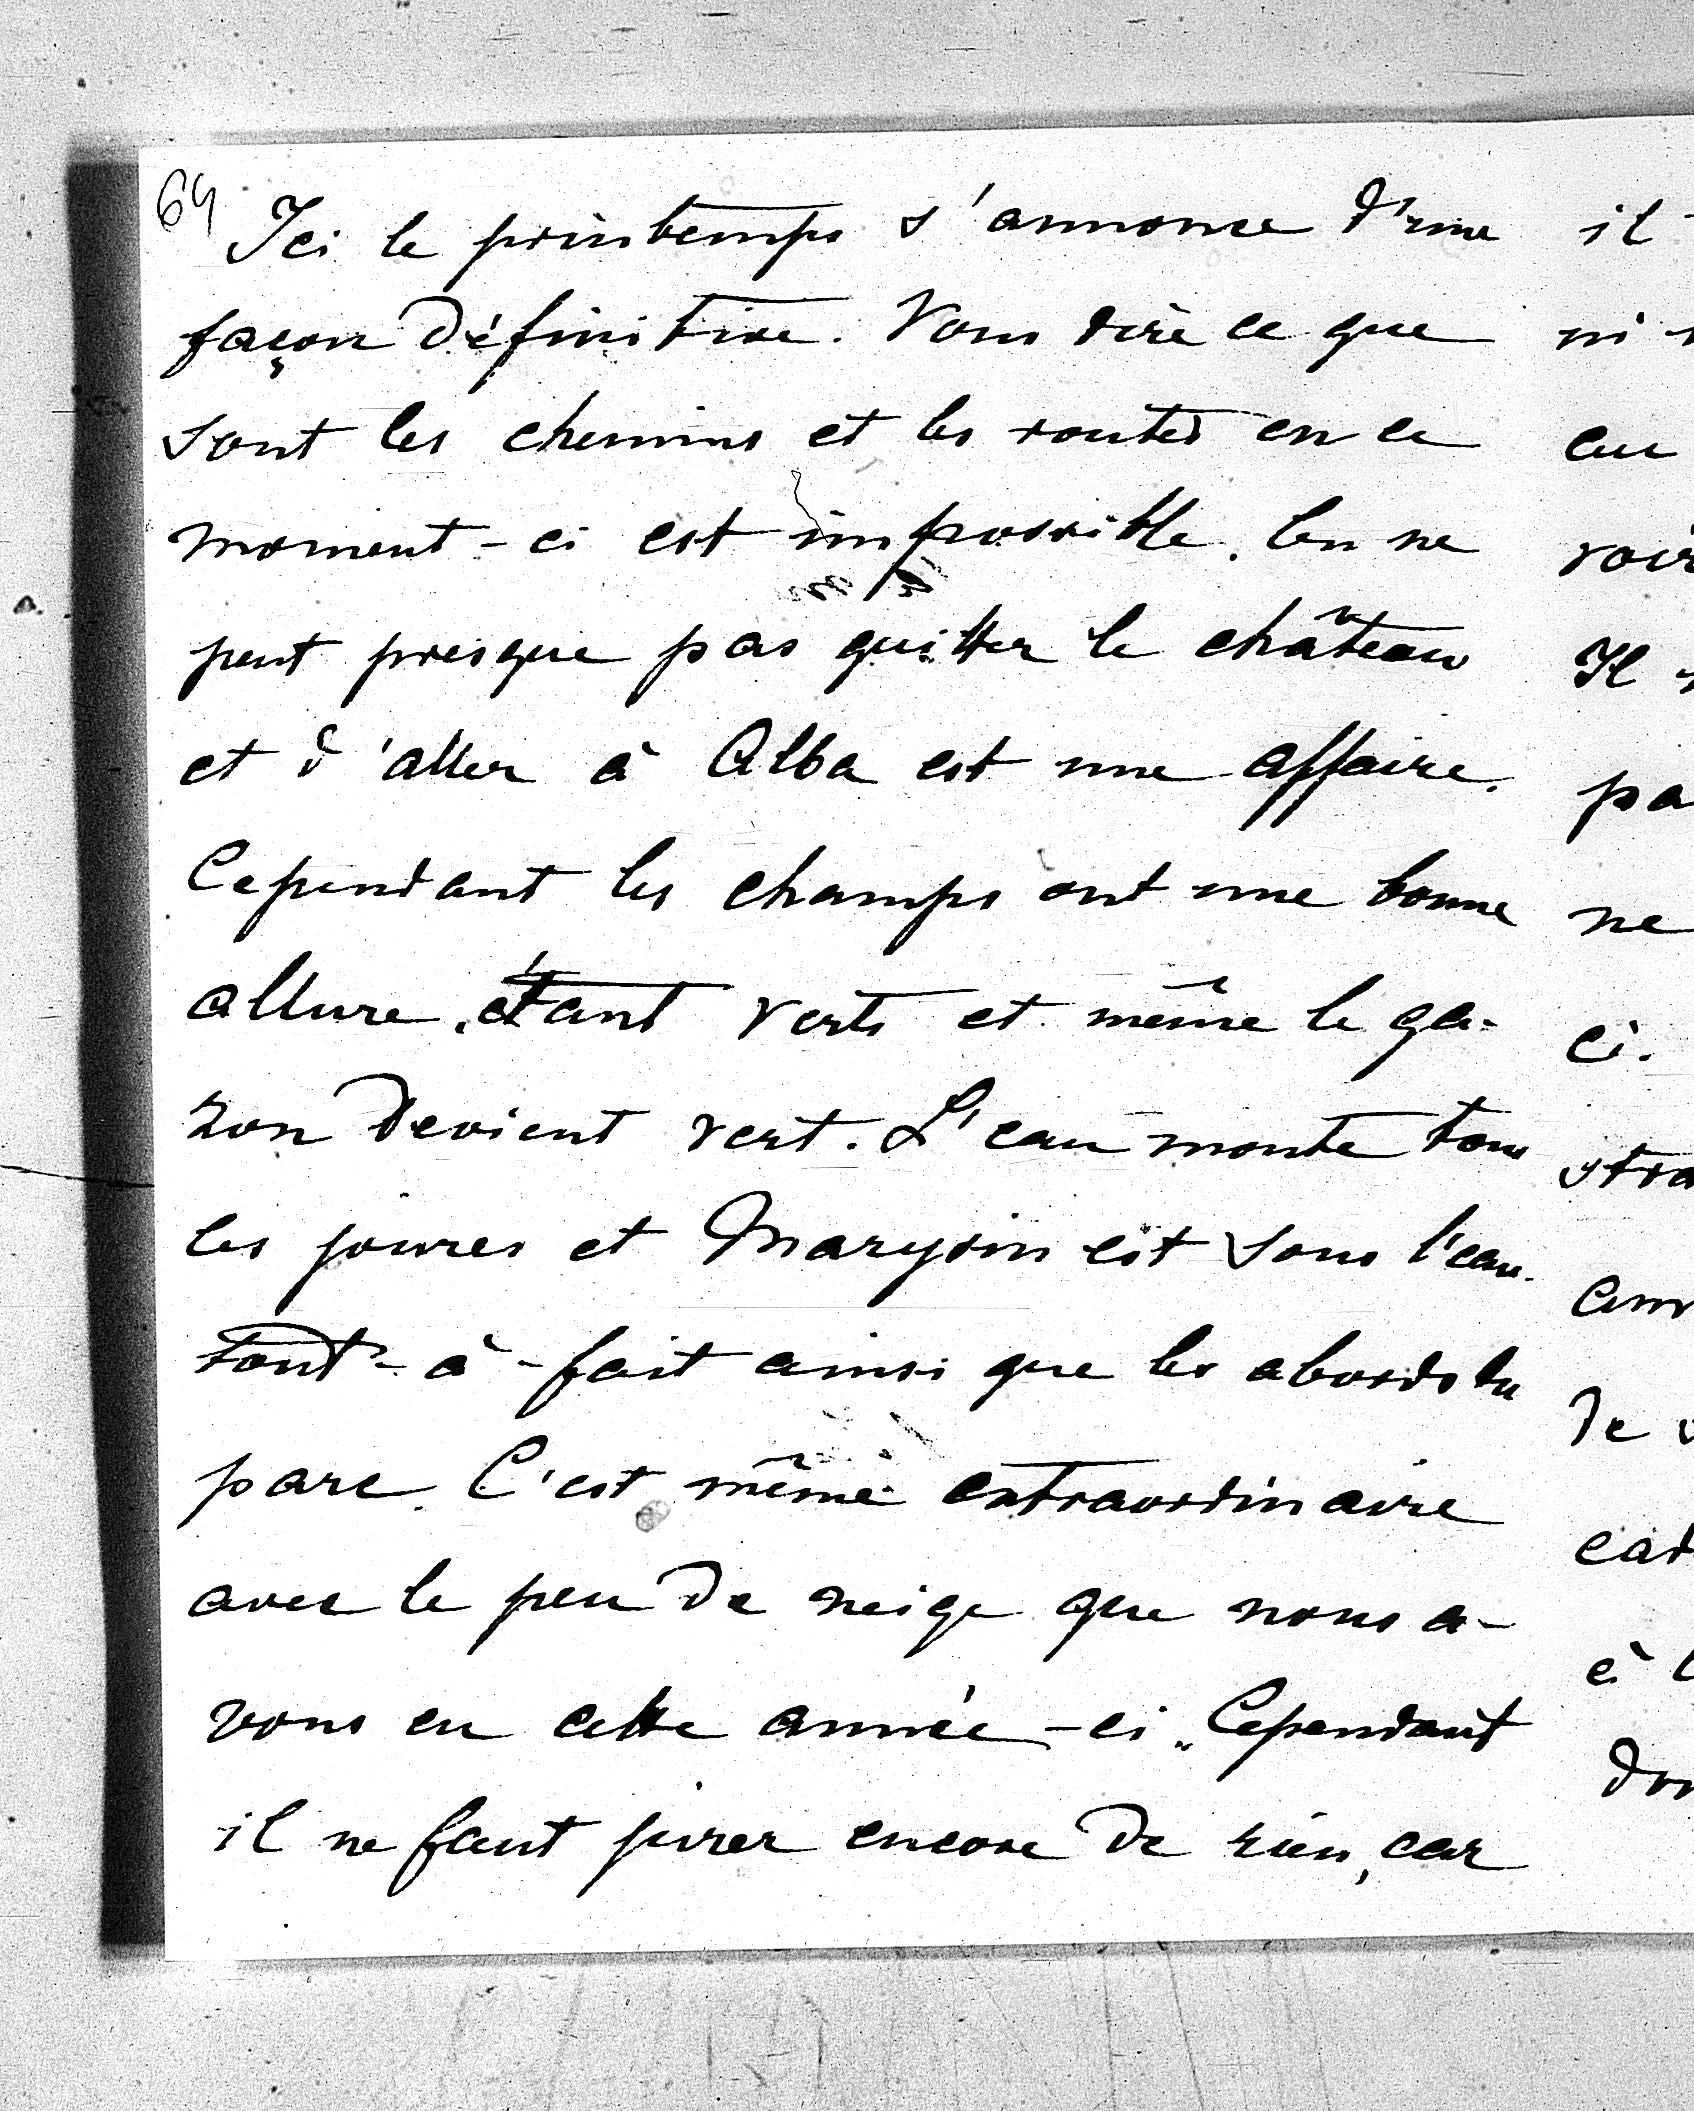 64
Ici le printemps s'annonce d'une
façon définitive. Vous dire ce que
sont les chemins et les routes en ce
moment-ci est impossible. On ne
peut presque pas quitter le château
et d'aller à Alba est une affaire.
Cependant les champs ont une bonne
allure, étant verts et même le ga-
zon devient vert. L'eau monte tous
les joures et Marysin est sous l'eau
tout-à-fait ainsi que les abords du
parc. C'est même extraordinaire
avec le peu de neige que nous a-
vons eu cette année-ci. Cependant
il ne faut jurer encore de rien, car
il
ni
eu
voir
Il
pa
ne
ci.
stra
de
à